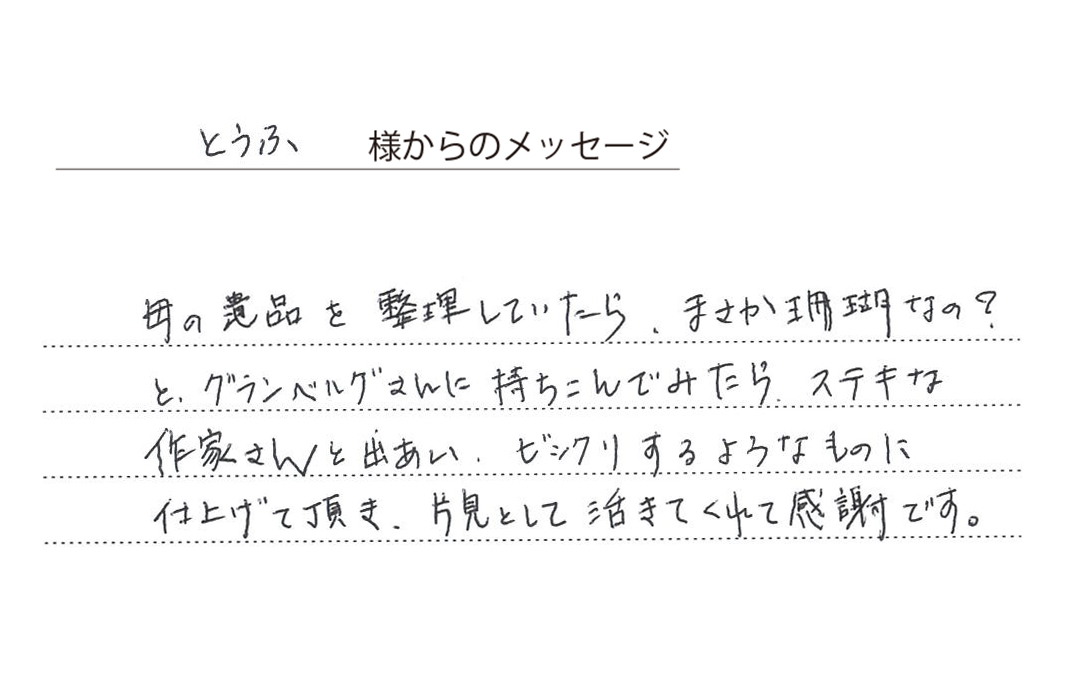 とうふ、 様からのメッセージ
母の遺品を整理していたら、まさか珊瑚なの?
と、グランベルグさんに持ちこんでみたら、ステキな
作家さんと出あい、ビックリするようなものに
仕上げて頂き、片見として活きてくれて感謝です。